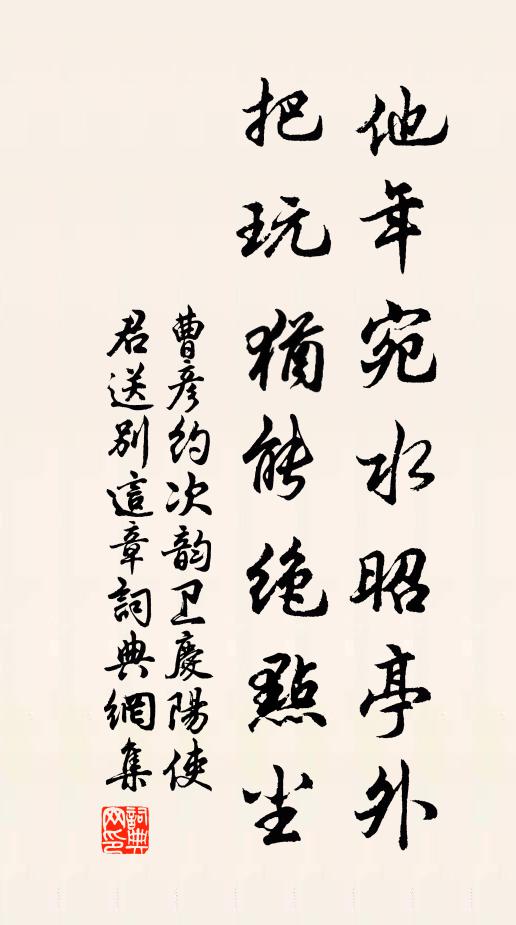 他年宛水昭亭外
把玩猶能絶點尘
曹彦约次韵卫慶陽使
君送别這章詞典網集
詞典
网印